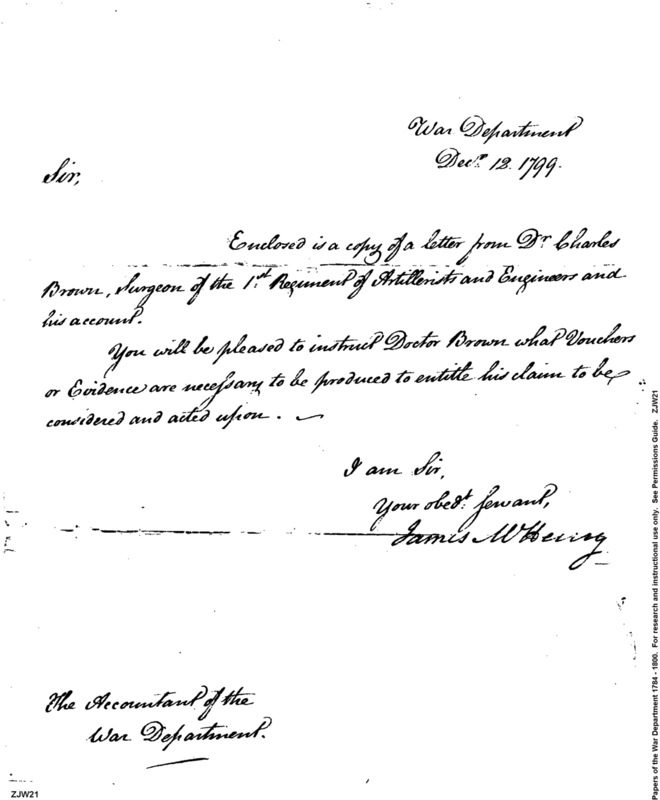 War Department
Decr. 12. 1799.
Sir,
Enclosed is a copy of a letter from Dr Charles
Brown, Surgeon of the 1st Regiment of Artillerists and Engineers and
his account.
You will be pleased to instruct Doctor Brown what Vouchers
or Evidence are necessary to be produced to entitle his claim to be
considered and acted upon.
I am Sir,
Your obedt. servant,
James McHenry
The Accountant of the
War Department.
ZJW21
Papers of the War Department 1784 - 1800. For research and instructional use only. See Permissions Guide. ZJW21